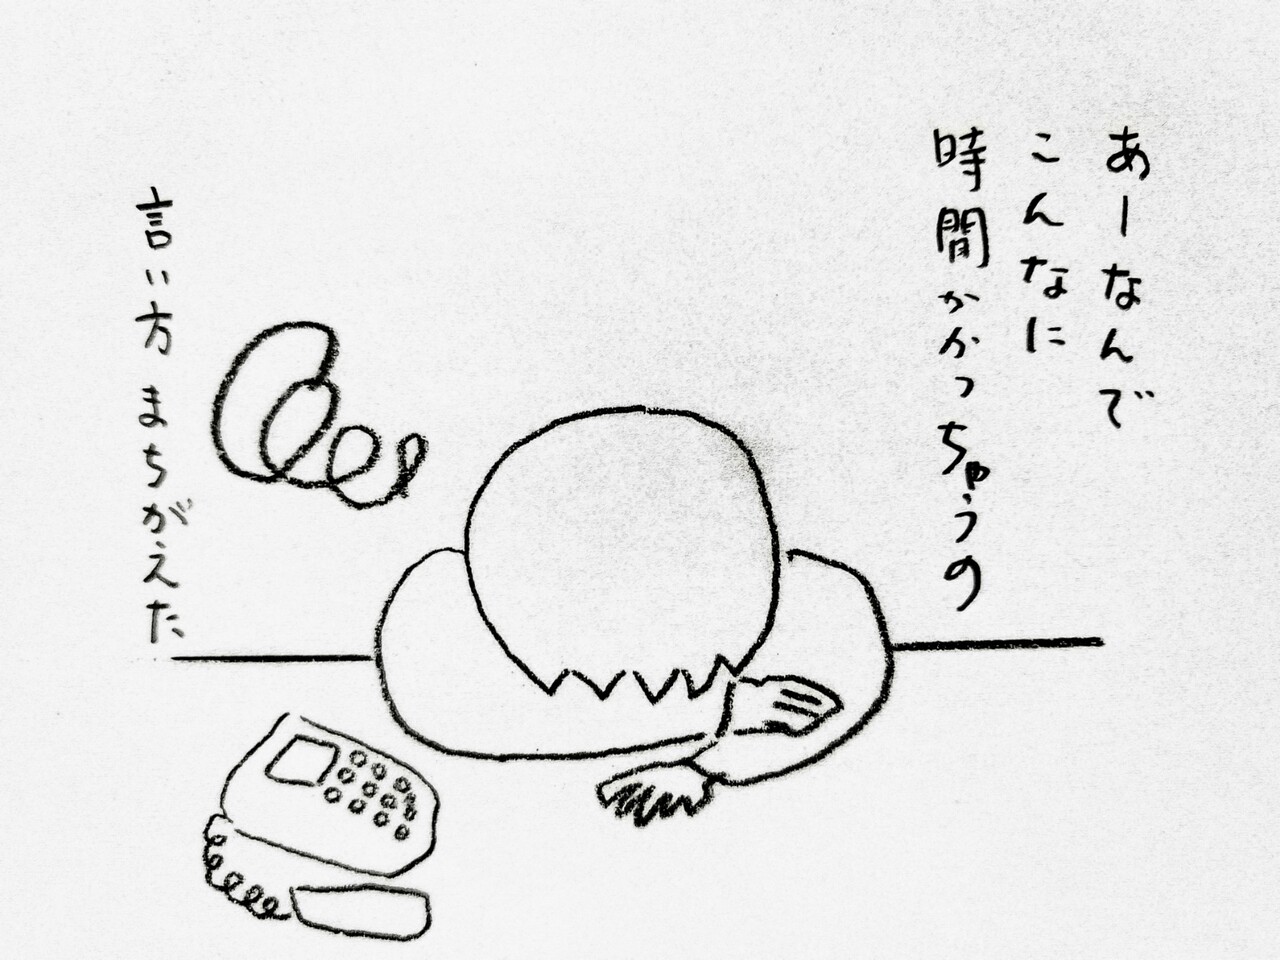 あーなんで
こんなに
時間かかっちゃうの
言い方まちがえた